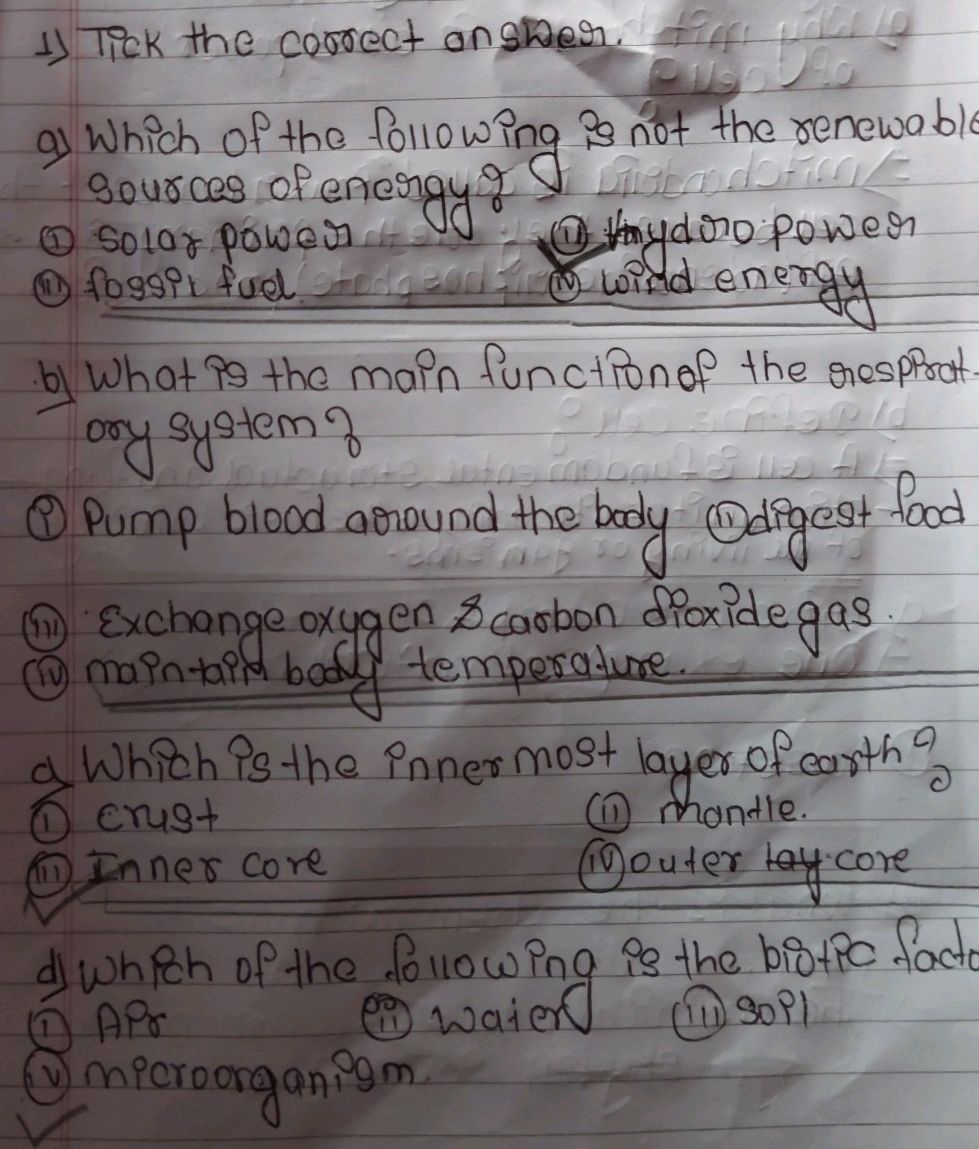 1) Tick the correct answer.
a) Which of the following is not the renewable
sources of energy?
(i) solar power (ii) hydro power
(iii) fossil fuel (iv) wind energy
b) What is the main function of the respirat-
ory system?
(i) Pump blood around the body (ii) digest food
(iii) Exchange oxygen & carbon dioxide gas.
(iv) maintain body temperature.
c) Which is the inner most layer of earth?
(i) crust (ii) mantle.
(iii) Inner core (iv) outer core
d) Which of the following is the biotic facto
(i) Air (ii) water (iii) soil
(iv) microorganism.